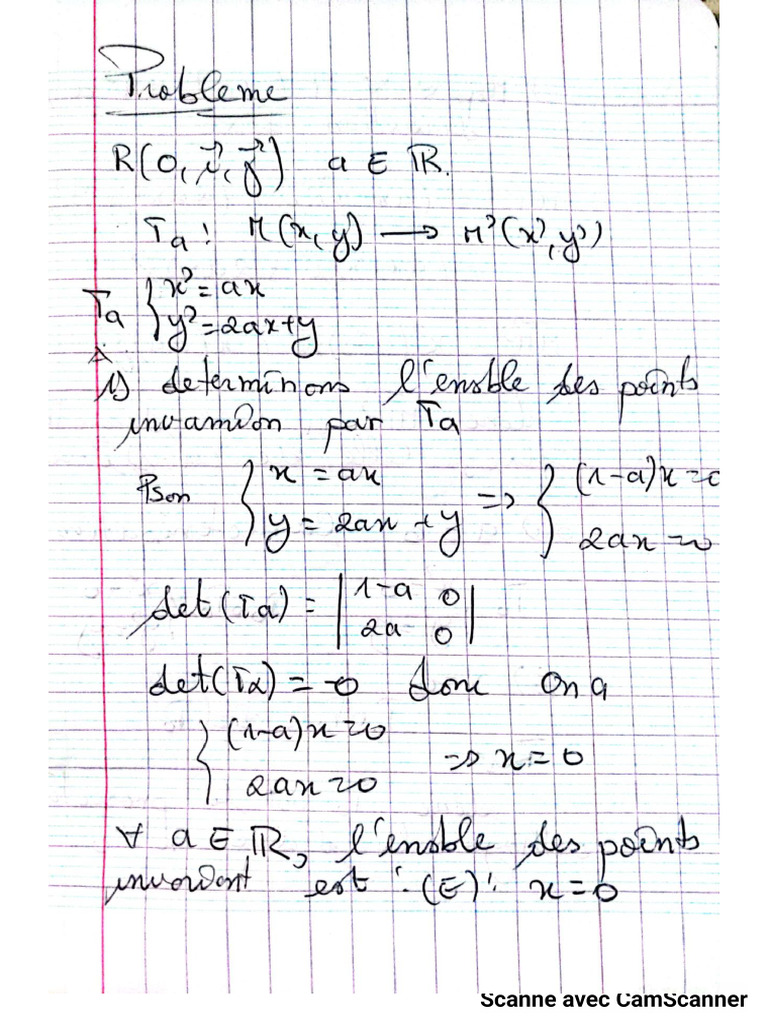 Probleme
R(0, i⃗, j⃗) a ∈ ℝ.
Ta : M(x, y) → M'(x', y')
Ta { x' = ax
y' = 2ax + y
1) determinons l'enseble des points
par Ta
Pson { x = ax ⇒ { (1-a)x = 0
y = 2ax + y 2ax = 0
det(Ta) = | 1-a 0 |
| 2a 0 |
det(Ta) = 0 donc on a
{ (1-a)x = 0 ⇒ x = 0
2ax = 0
∀ a ∈ ℝ, l'enseble des points
est : (E) : x = 0
Scanné avec CamScanner